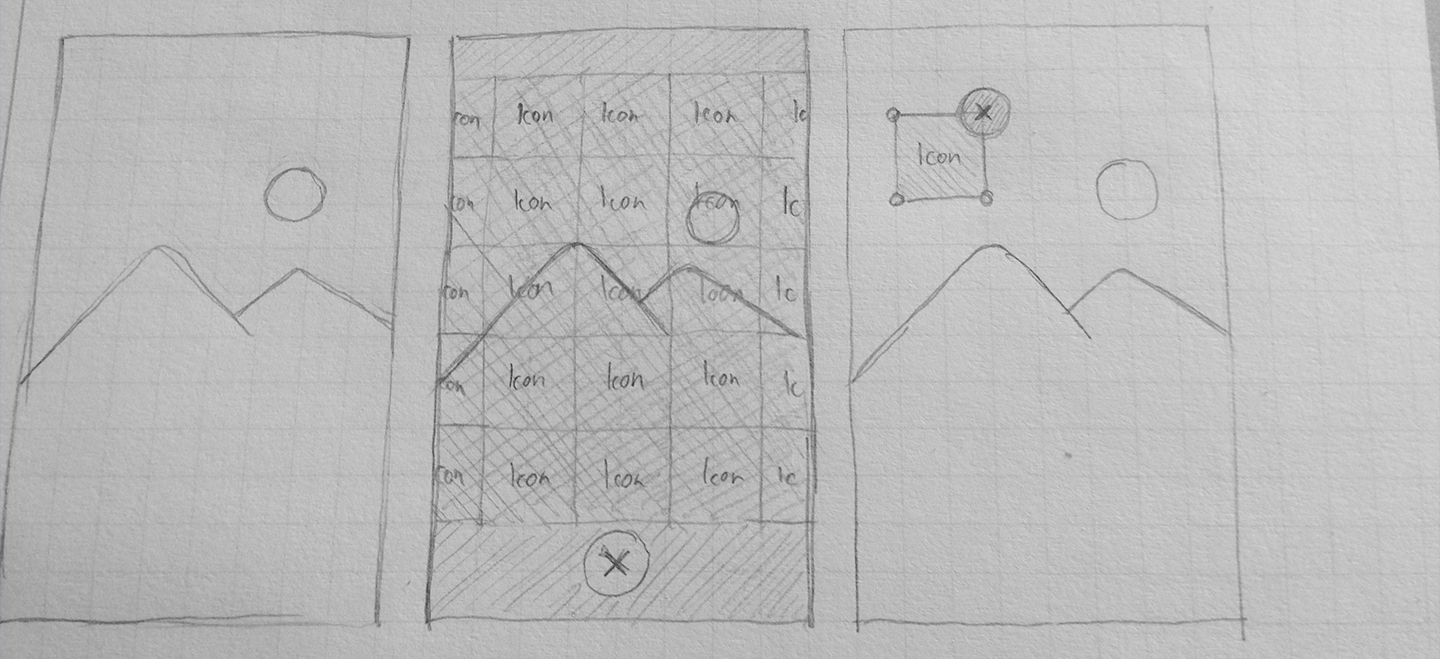 con Icon Icon Icon Ic
con Icon Icon Icon Ic
con Icon Icon Icon Ic
con Icon Icon Icon Ic
con Icon Icon Icon Ic
X
X
Icon